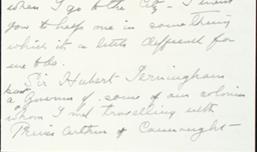 when I go to the
you to help me in something
which is a little different for
me to do.
Sir Hubert Jerningham
a Governor of some of our colonies
whom I met travelling with
Prince Arthur of Connaught -